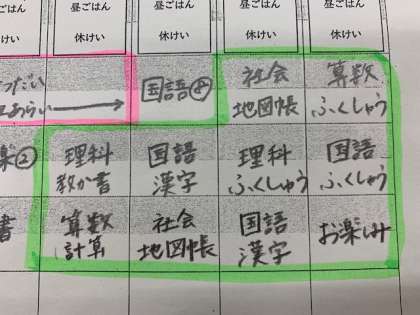 昼ごはん 昼ごはん 昼ごはん 昼ごはん
休けい 休けい 休けい 休けい
国語④ 社会 算数
地図帳 ふくしゅう
② 理科 国語 理科 国語
教か書 漢字 ふくしゅう ふくしゅう
書 算数 社会 国語 お楽しみ
計算 地図帳 漢字